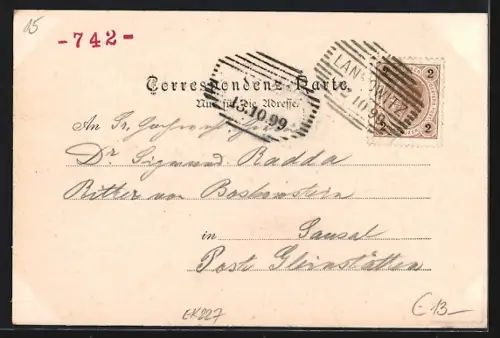 15
-742-
Correspondenz-Karte.
Nur für die Adresse.
13.10.99
LANKOWITZ
10.99
2 2
2 2
An
Dr. Sigmund Radda
Ritter von Boskowstein
in Sausal
Post Gleinstätten
EK227
€ 13-